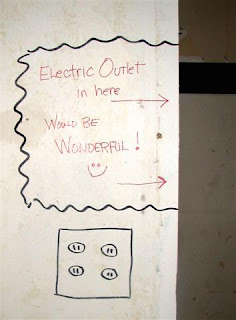 Electric Outlet
in here
Would Be
Wonderful!